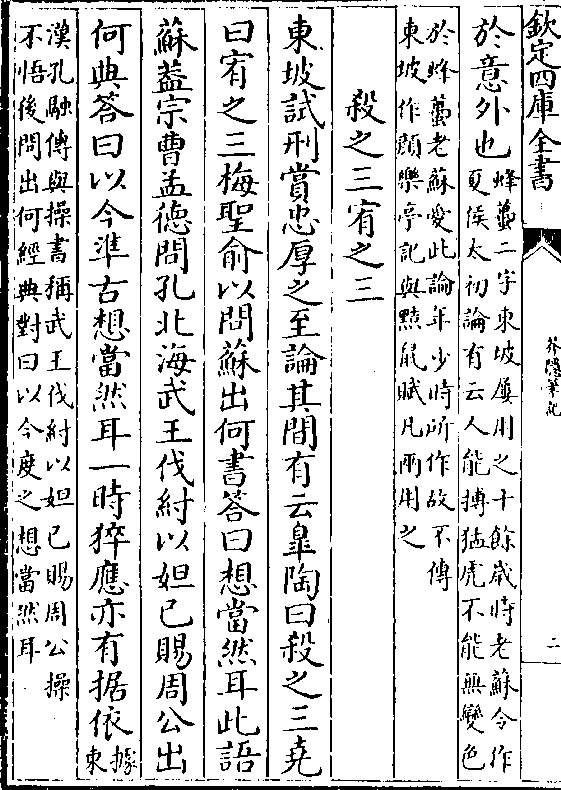 欽定四庫全書
芥隱筆記
二
於意外也
蜂蠆二字東坡屢用之十餘歳時老蘇令作
夏侯太初論有云人能搏猛虎不能無變色
於蜂蠆老蘇愛此論年少時所作故不傳
東坡作顔樂亭記與黠䑕賦凡兩用之
殺之三宥之三
東坡試刑賞忠厚之至論其間有云臯陶曰殺之三堯
曰宥之三梅聖俞以問蘇出何書答曰想當然耳此語
蘇葢宗曹孟徳問孔北海武王伐紂以妲己賜周公出
何典答曰以今準古想當然耳一時猝應亦有据依
據
東
漢孔融傳與操書稱武王伐紂以妲己賜周公操
不悟後問出何經典對曰以今度之想當然耳